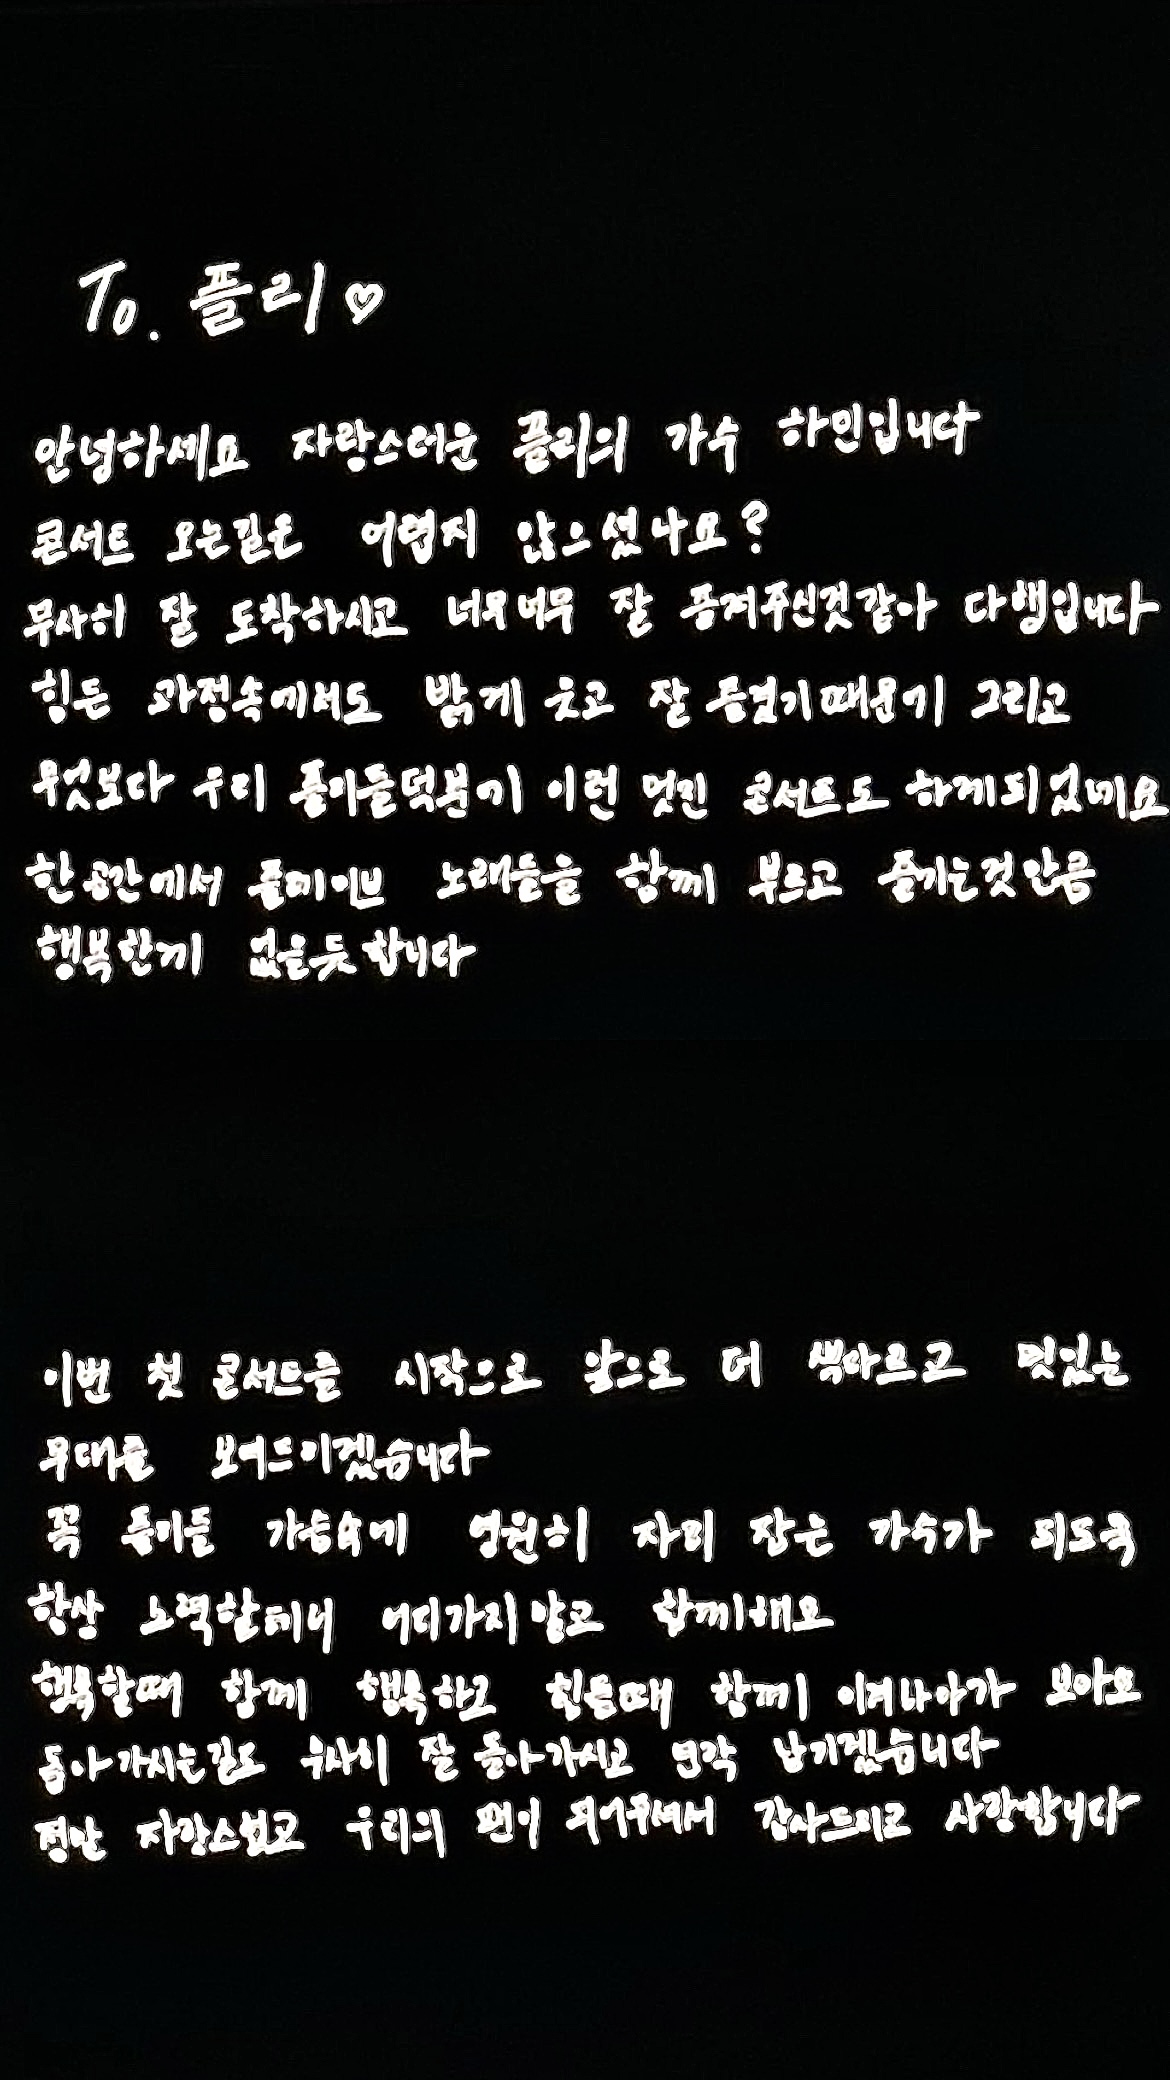 To. 플리♡
안녕하세요 자랑스러운 플리의 가수 하민입니다
콘서트 오는길은 어렵지 않으셨나요?
무사히 잘 도착하시고 너무너무 잘 즐겨주신것같아 다행입니다
힘든 과정속에서도 밝게 웃고 잘 즐겼기때문에 그리고
무엇보다 우리 플리들덕분에 이런 멋진 콘서트도 하게되었네요
한공간에서 플레이브 노래들을 함께 부르고 즐기는것만큼
행복한게 없을듯합니다
이번 첫 콘서트를 시작으로 앞으로 더 색다르고 멋있는
무대를 보여드리겠습니다
꼭 플리들 가슴속에 영원히 자리 잡은 가수가 되도록
항상 노력할테니 어디가지말고 함께해요
행복할때 함께 행복하고 힘들때 함께 이겨나아가 보아요
돌아가시는길도 무사히 잘 돌아가시고 연락 남기겠습니다
정말 자랑스럽고 우리의 팬이 되어주셔서 감사드리고 사랑합니다